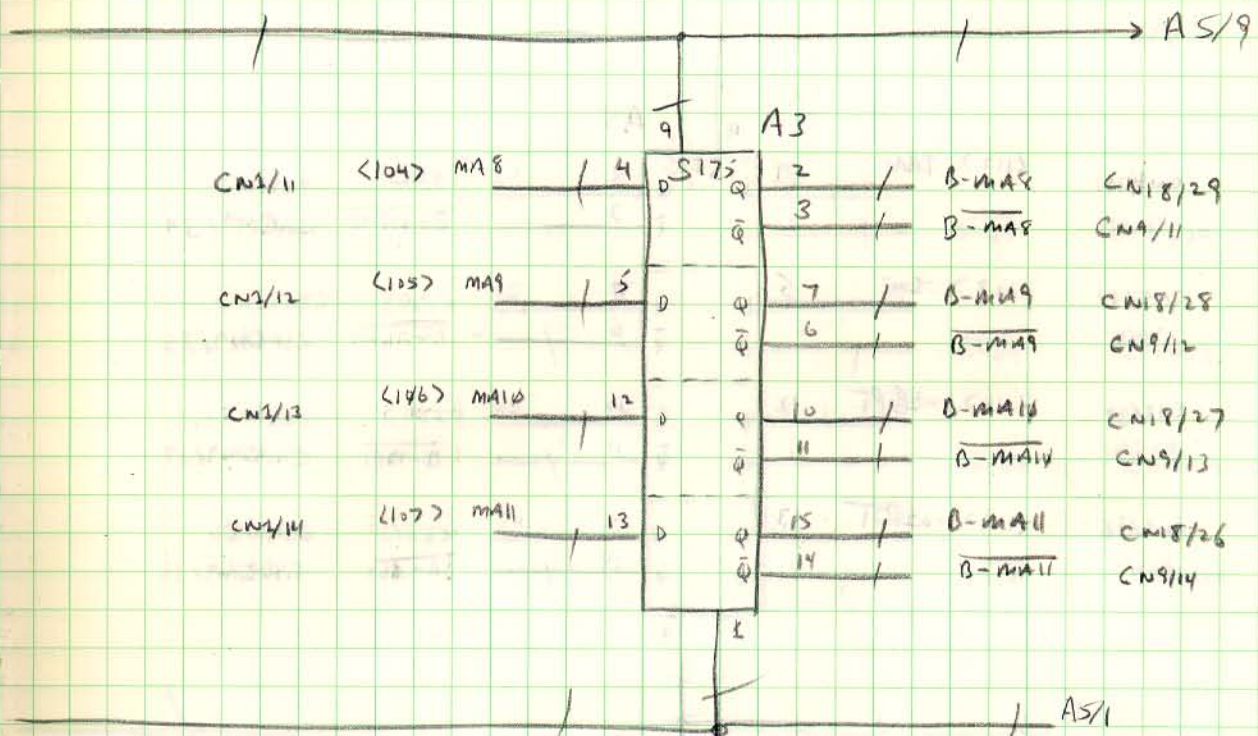 A5/9
9 A3
CN1/11 <104> MA8 4 D S175 Q 2 B-MA8 CN18/29
Q̅ 3 B-M̅A̅8̅ CN9/11
CN1/12 <105> MA9 5 D Q 7 B-MA9 CN18/28
Q̅ 6 B̅-̅M̅A̅9̅ CN9/12
CN1/13 <106> MA10 12 D Q 10 B-MA10 CN18/27
Q̅ 11 B̅-̅M̅A̅1̅0̅ CN9/13
CN1/14 <107> MA11 13 D Q 15 B-MA11 CN18/26
Q̅ 14 B̅-̅M̅A̅1̅1̅ CN9/14
1
A5/1